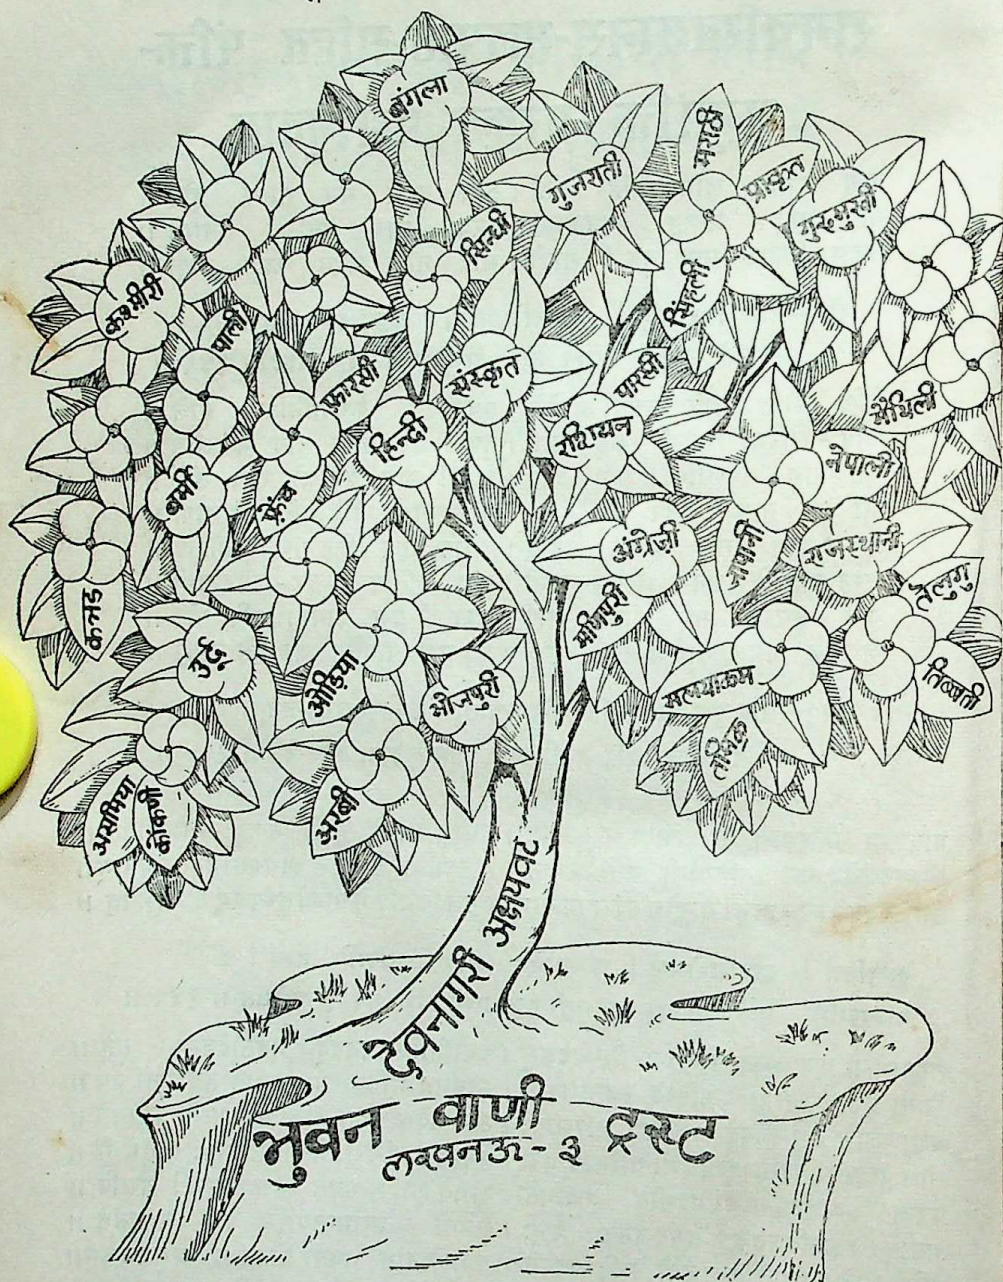 बंगला
मराठी
गुजराती
प्राकृत
गुरुमुखी
सिन्धी
सिंहली
कश्मीरी
पाली
फ़ारसी
संस्कृत
पारसी
मैथिली
हिन्दी
रशियन
नेपाली
बर्मी
फ़्रेंच
अंग्रेज़ी
जापानी
राजस्थानी
तेलुगु
कन्नड
मणिपुरी
उर्दू
ओड़िया
भोजपुरी
मलयाळम
तिब्बती
तमिळ
असमिया
कोंकणी
अ़रबी
देवनागरी अक्षयवट
भुवन वाणी ट्रस्ट
लखनऊ-३